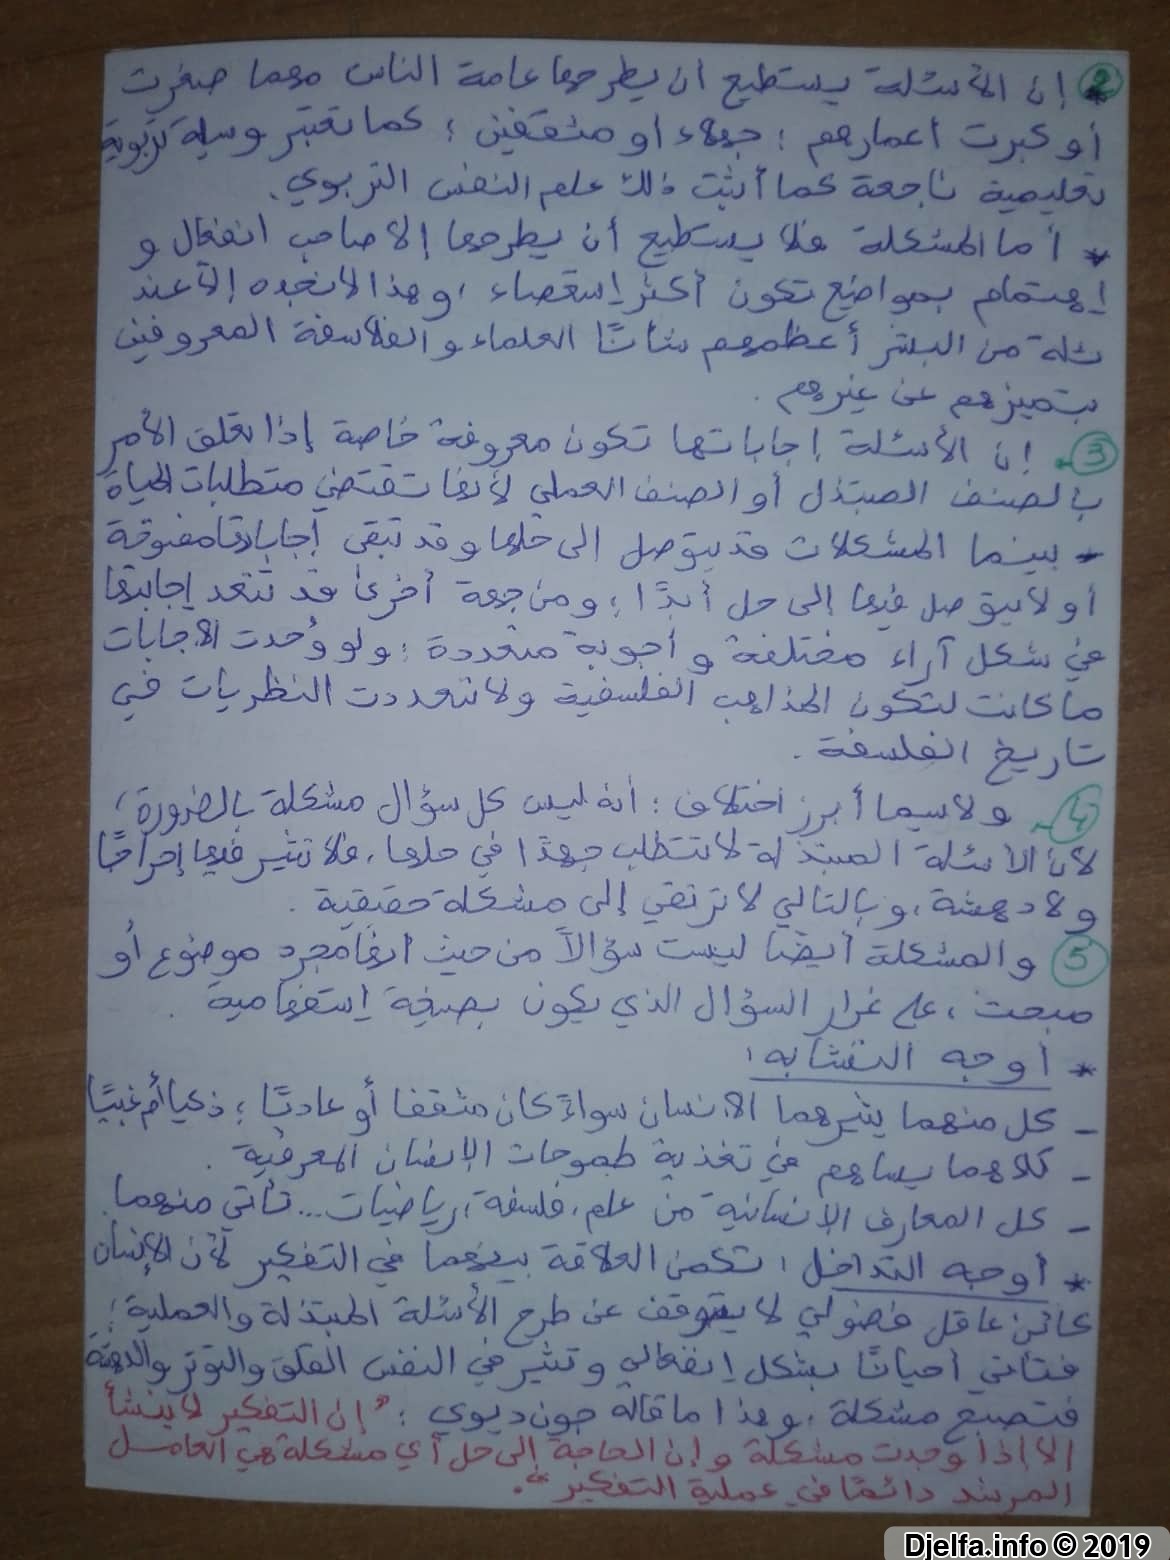 ② إن الأسئلة يستطيع ان يطرحها عامة الناس مهما صغرت
أو كبرت أعمارهم ؛ جهلاء او مثقفين ؛ كما تعتبر وسيلة تربوية
تعليمية ناجعة كما أثبت ذلك علم النفس التربوي.
* أما المشكلة فلا يستطيع أن يطرحها إلا صاحب انفعال و
إهتمام بمواضيع تكون أكثر إستقصاء ، وهذا لا نجده إلا عند
ثلة من البشر أعظمهم شأنًا العلماء و الفلاسفة المعروفين
بتميزهم عن غيرهم .
③ إن الأسئلة إجاباتها تكون معروفة خاصة إذا تعلق الأمر
بالصنف المبتذل أو الصنف العملي لأنها تقتضي متطلبات الحياة
- بينما المشكلات قد يتوصل الى حلها و قد تبقى إجاباتها مفتوحة
أو لا يتوصل فيها إلى حل أبدًا ؛ ومن جهة أخرى قد تتعد إجابتها
في شكل آراء مختلفة و أجوبة متعددة ؛ ولو وُحدت الاجابات
ما كانت لتكون المذاهب الفلسفية ولا تعددت النظريات في
تاريخ الفلسفة .
④ ولاسيما أبرز اختلاف : أنه ليس كل سؤال مشكلة بالضرورة ؛
لأن الأسئلة المبتذلة لا تتطلب جهدًا في حلها ، فلا تثير فيها إحراجًا
ولا دهشة ، و بالتالي لا ترتقي إلى مشكلة حقيقية .
⑤ و المشكلة أيضًا ليست سؤالاً من حيث انها مجرد موضوع أو
مبحث ، على غرار السؤال الذي يكون بصيغة إستفهامية .
* أوجه التشابه :
- كل منهما يثيرهما الانسان سواءً كان مثقفا أو عاديًا ؛ ذكيا أم غبيًا
- كلاهما يساهم في تغذية طموحات الإنسان المعرفية .
- كل المعارف الإنسانية من علم ، فلسفة ، رياضيات... تأتي منهما.
* أوجه التداخل : تكمن العلاقة بينهما في التفكير لأن الإنسان
كائن عاقل فضولي لا يتوقف عن طرح الأسئلة المبتذلة والعملية ؛
فتأتي أحيانًا بشكل إنفعالي و تثير في النفس القلق والتوتر والدهشة
فتصبح مشكلة ، وهذا ما قاله جون ديوي : " إن التفكير لا ينشأ
الا اذا وجدت مشكلة و إن الحاجة إلى حل أي مشكلة هي العامل
المرشد دائمًا في عملية التفكير ".
Djelfa.info © 2019